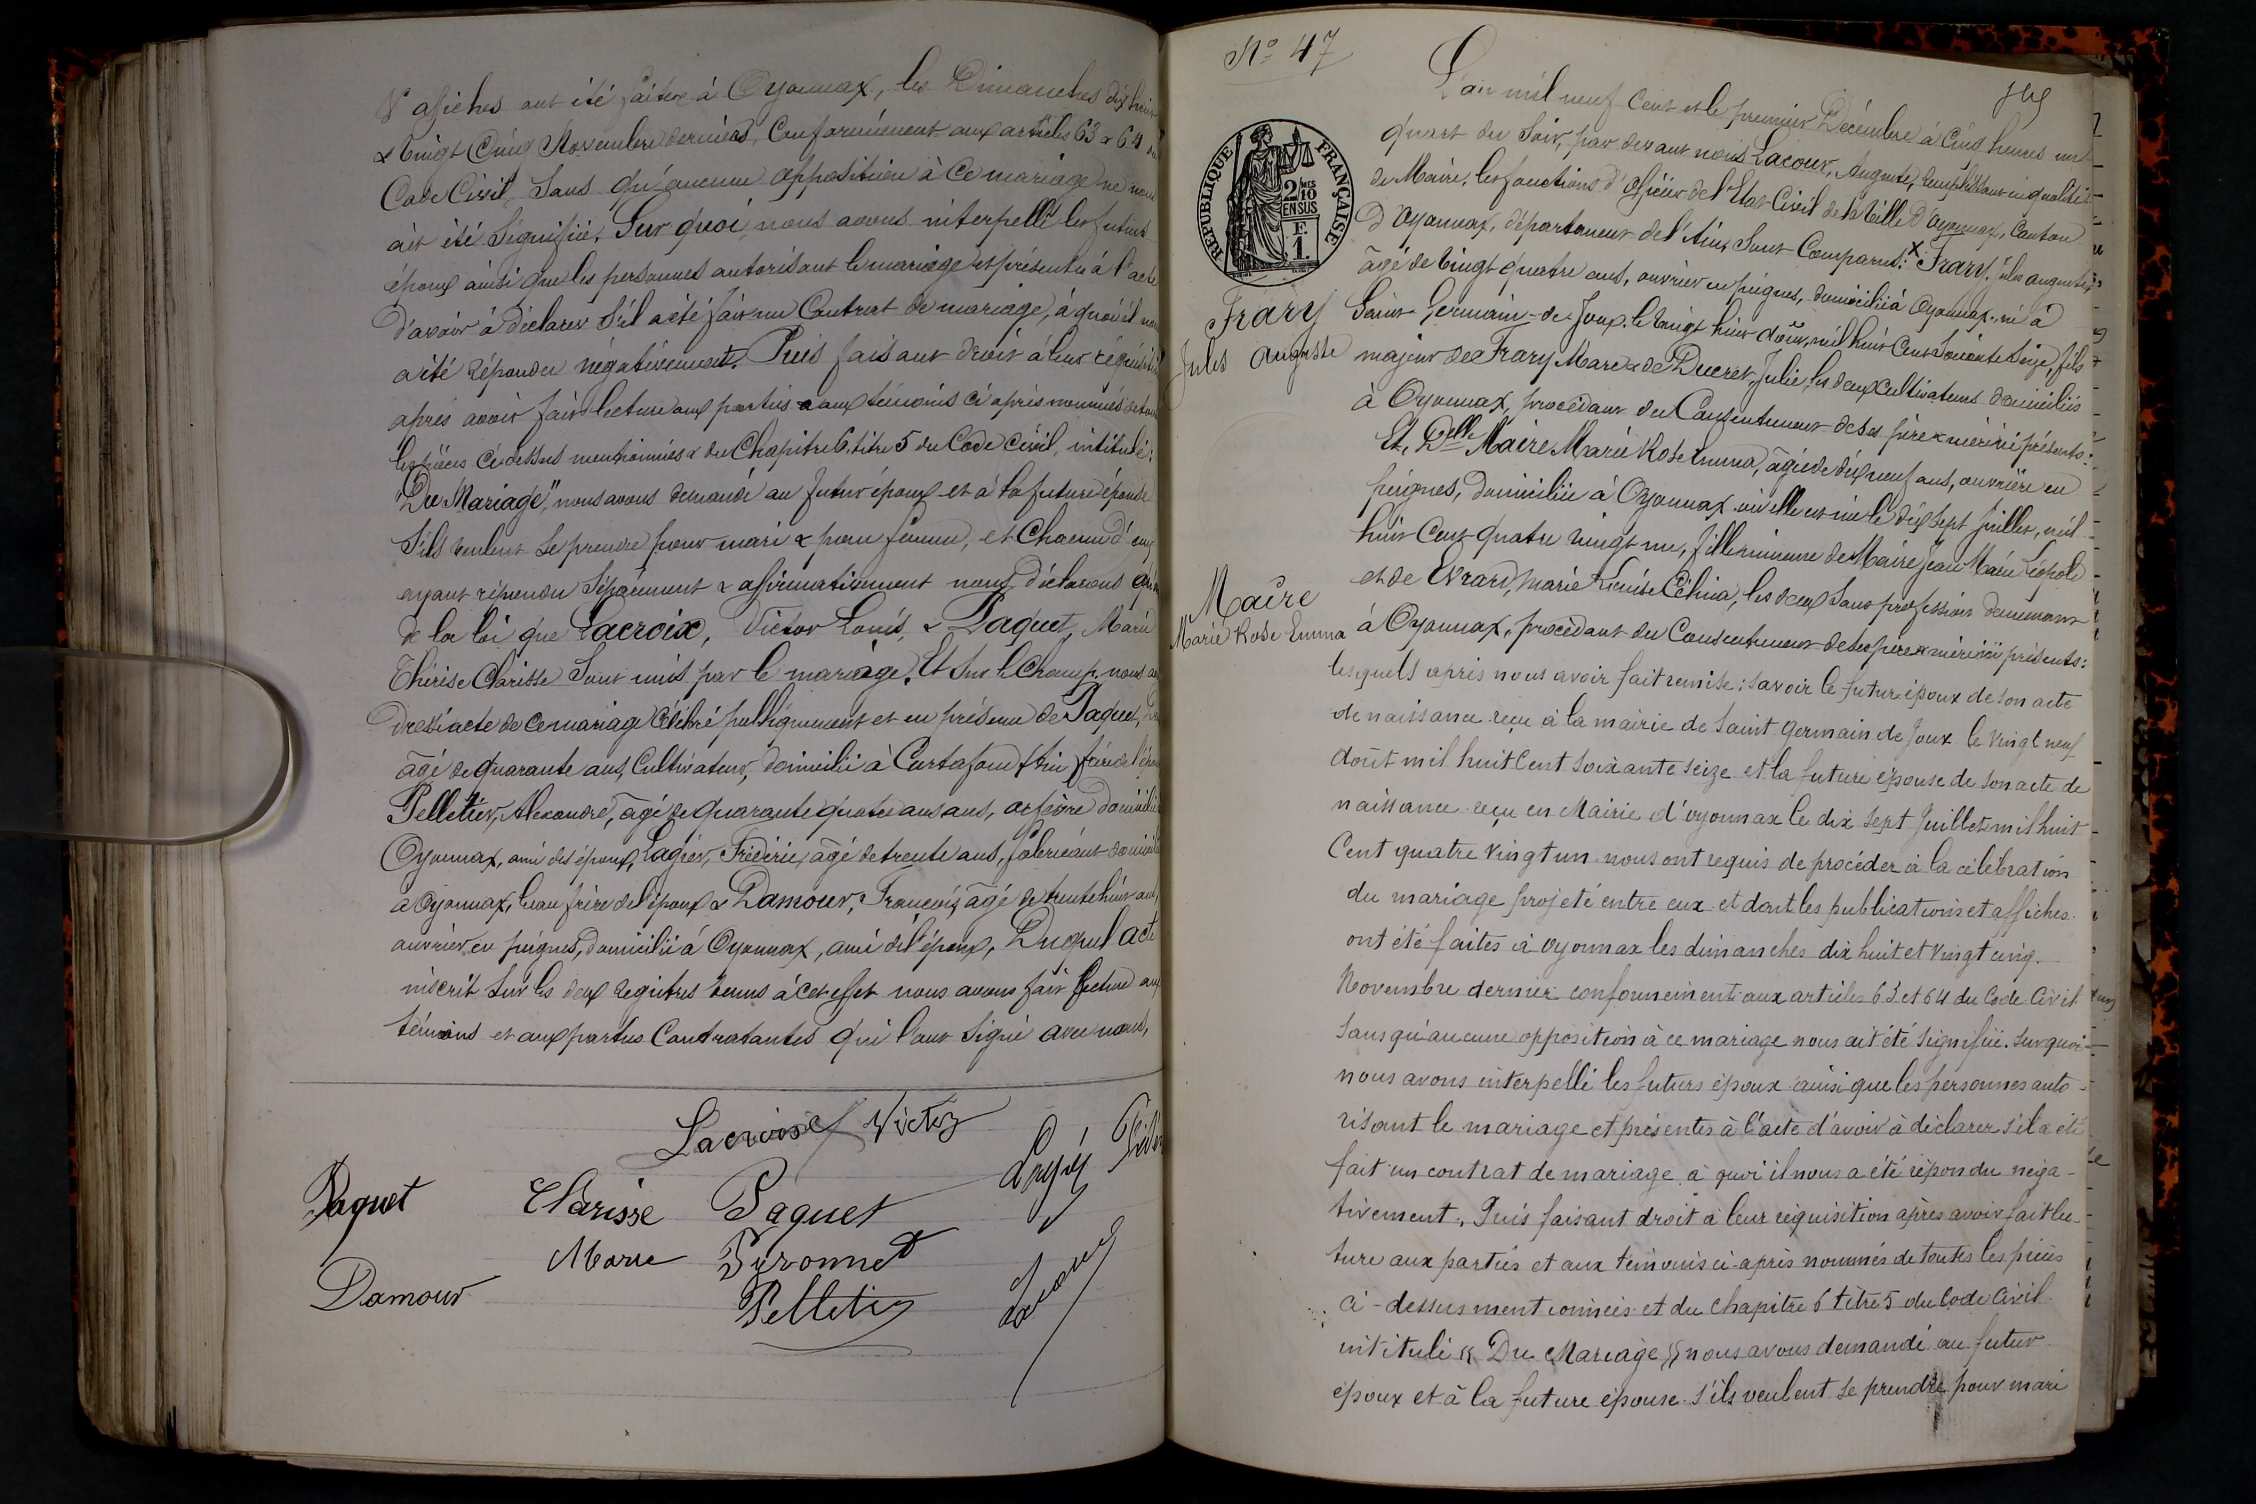 & affiches ont été faites à Oyonnax, les Dimanches dix huit
& Vingt Cinq Novembre derniers, Conformément aux articles 63 & 64 du
Code Civil, Sans qu'aucune opposition à Ce mariage ne nous
ait été Signifiée. Sur quoi, nous avons interpellé les futurs
époux ainsi que les personnes autorisant le mariage et présentes à l'acte
d'avoir à déclarer S'il a été fait un Contrat de mariage, à quoi il nous
a été répondu négativement. Puis faisant droit à leur réquisition
après avoir fait lecture aux parties & aux témoins ci après nommés de toutes
les pièces ci dessus mentionnées & du Chapitre 6, titre 5 du Code Civil, intitulé:
"Du Mariage", nous avons demandé au futur époux et à la future épouse
S'ils veulent Se prendre pour mari & pour femme, et Chacun d'eux
ayant répondu Séparément & affirmativement nous déclarons au nom
de la loi que Lacroix, Victor Louis, & Paquet, Marie
Thérèse Clarisse Sont unis par le mariage. Et Sur le Champ, nous avons
dressé acte de ce mariage Célébré publiquement et en présence de Paquet,
âgé de quarante ans, Cultivateur, domicilié à Cortafond (Ain) frère de l'épouse
Pelletier, Alexandre, âgé de quarante quatre ans ans, orfèvre domicilié
Oyonnax, ami des époux, Lagier, Frédéric, âgé de trente ans, fabricant domicilié
à Oyonnax, beau frère de l'époux & Damour, François, âgé de trente huit ans,
ouvrier en peignes, domicilié à Oyonnax, ami de l'époux, Duquel acte
inscrit Sur les deux registres tenus à cet effet nous avons fait lecture aux
témoins et aux parties Contractantes qui l'ont Signé avec nous,
Lacroix Victor
Paquet Clarisse Paquet
Marie Pyronnet
Damour Pelletier
Lacour
N° 47
L'an mil neuf Cent et le premier Décembre à Cinq heures un
quart du Soir, par devant nous Lacour, Auguste, remplissant en qualité
de Maire, les fonctions d'officier de l'Etat Civil de la Ville d'Oyonnax, Canton
d'Oyonnax, département de l'Ain, Sont Comparus: x Frary, Jules Auguste
âgé de Vingt quatre ans, ouvrier en peignes, domicilié à Oyonnax, né à
Saint Germain-de Joux, le vingt huit Août, mil huit Cent Soixante Seize, fils
majeur de Frary Marc & de Ducret, Julie, les deux Cultivateurs domiciliés
à Oyonnax, procédant du Consentement de Ses père & mère ici présents:
Et, Delle Maire Marie Rose Emma, âgée de dix neuf ans, ouvrière en
peignes, domiciliée à Oyonnax où elle est née le dix Sept Juillet, mil
huit Cent quatre vingt un, fille mineure de Maire Jean Marie Léopold
et de Evrard, Marie Louise Célina, les deux Sans profession demeurant
à Oyonnax, procédant du Consentement de Ses père & mère ici présents:
Frary
Jules Auguste
Maire
Marie Rose Emma
lesquels après nous avoir fait remise: savoir le futur époux de son acte
de naissance reçu à la mairie de Saint Germain de Joux le Vingt neuf
Août mil huit Cent Soixante seize et la future épouse de son acte de
naissance reçu en Mairie d'oyonnax le dix sept Juillet mil huit
Cent quatre Vingt un nous ont requis de procéder à la célébration
du mariage projeté entre eux et dont les publications et affiches
ont été faites à oyonnax les dimanches dix huit et Vingt cinq
Novembre dernier conformement aux articles 63 et 64 du Code Civil
sans qu'aucune opposition à ce mariage nous ait été signifiée. Sur quoi
nous avons interpellé les futurs époux ainsi que les personnes auto-
risant le mariage et présentes à l'acte d'avoir à déclarer s'il a été
fait un contrat de mariage à quoi il nous a été répondu néga-
tivement. Puis faisant droit à leur réquisition après avoir fait lec-
ture aux parties et aux témoins ci-après nommés de toutes les pièces
ci-dessus mentionnées et du chapitre 6 titre 5 du Code Civil
intitulé « Du Mariage » nous avons demandé au futur
époux et à la future épouse s'ils veulent se prendre pour mari
REPUBLIQUE FRANÇAISE
2/10
EN SUS
F.
1.